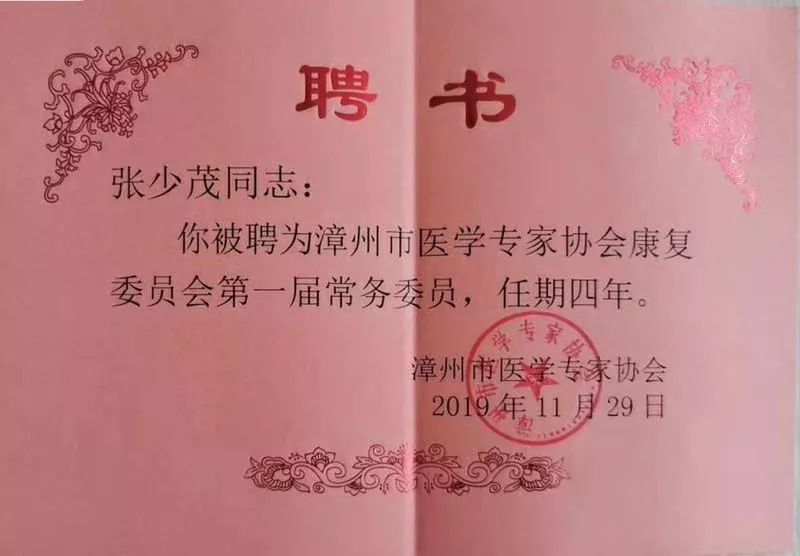 聘书
张少茂同志：
你被聘为漳州市医学专家协会康复
委员会第一届常务委员，任期四年。
漳州市医学专家协会
2019年11月29日